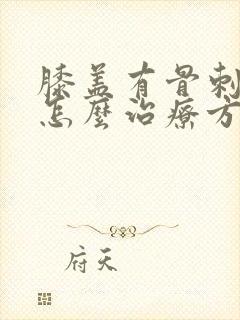 膝盖有骨刺
怎麼治療方
府天